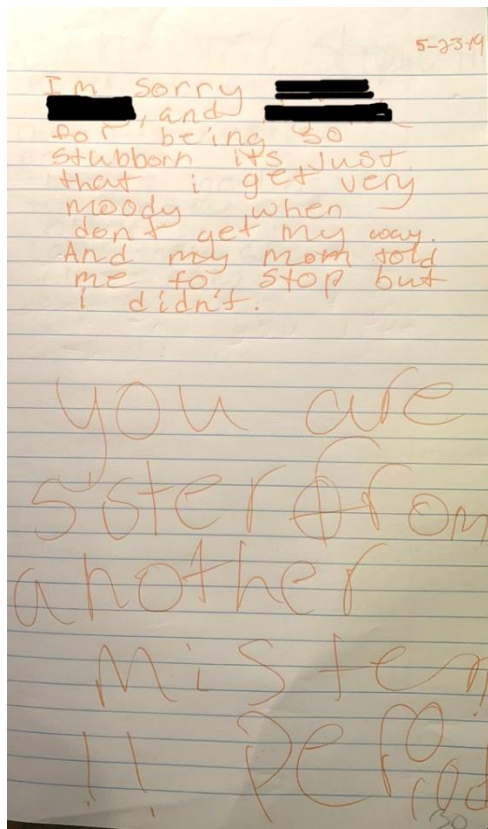 5-23-19
Im sorry
, and
for being so
stubborn its just
that i get very
moody when
don't get my way.
And my mom told
me to stop but
i didn't.
you are
sister from
another
mister
!! Period
30